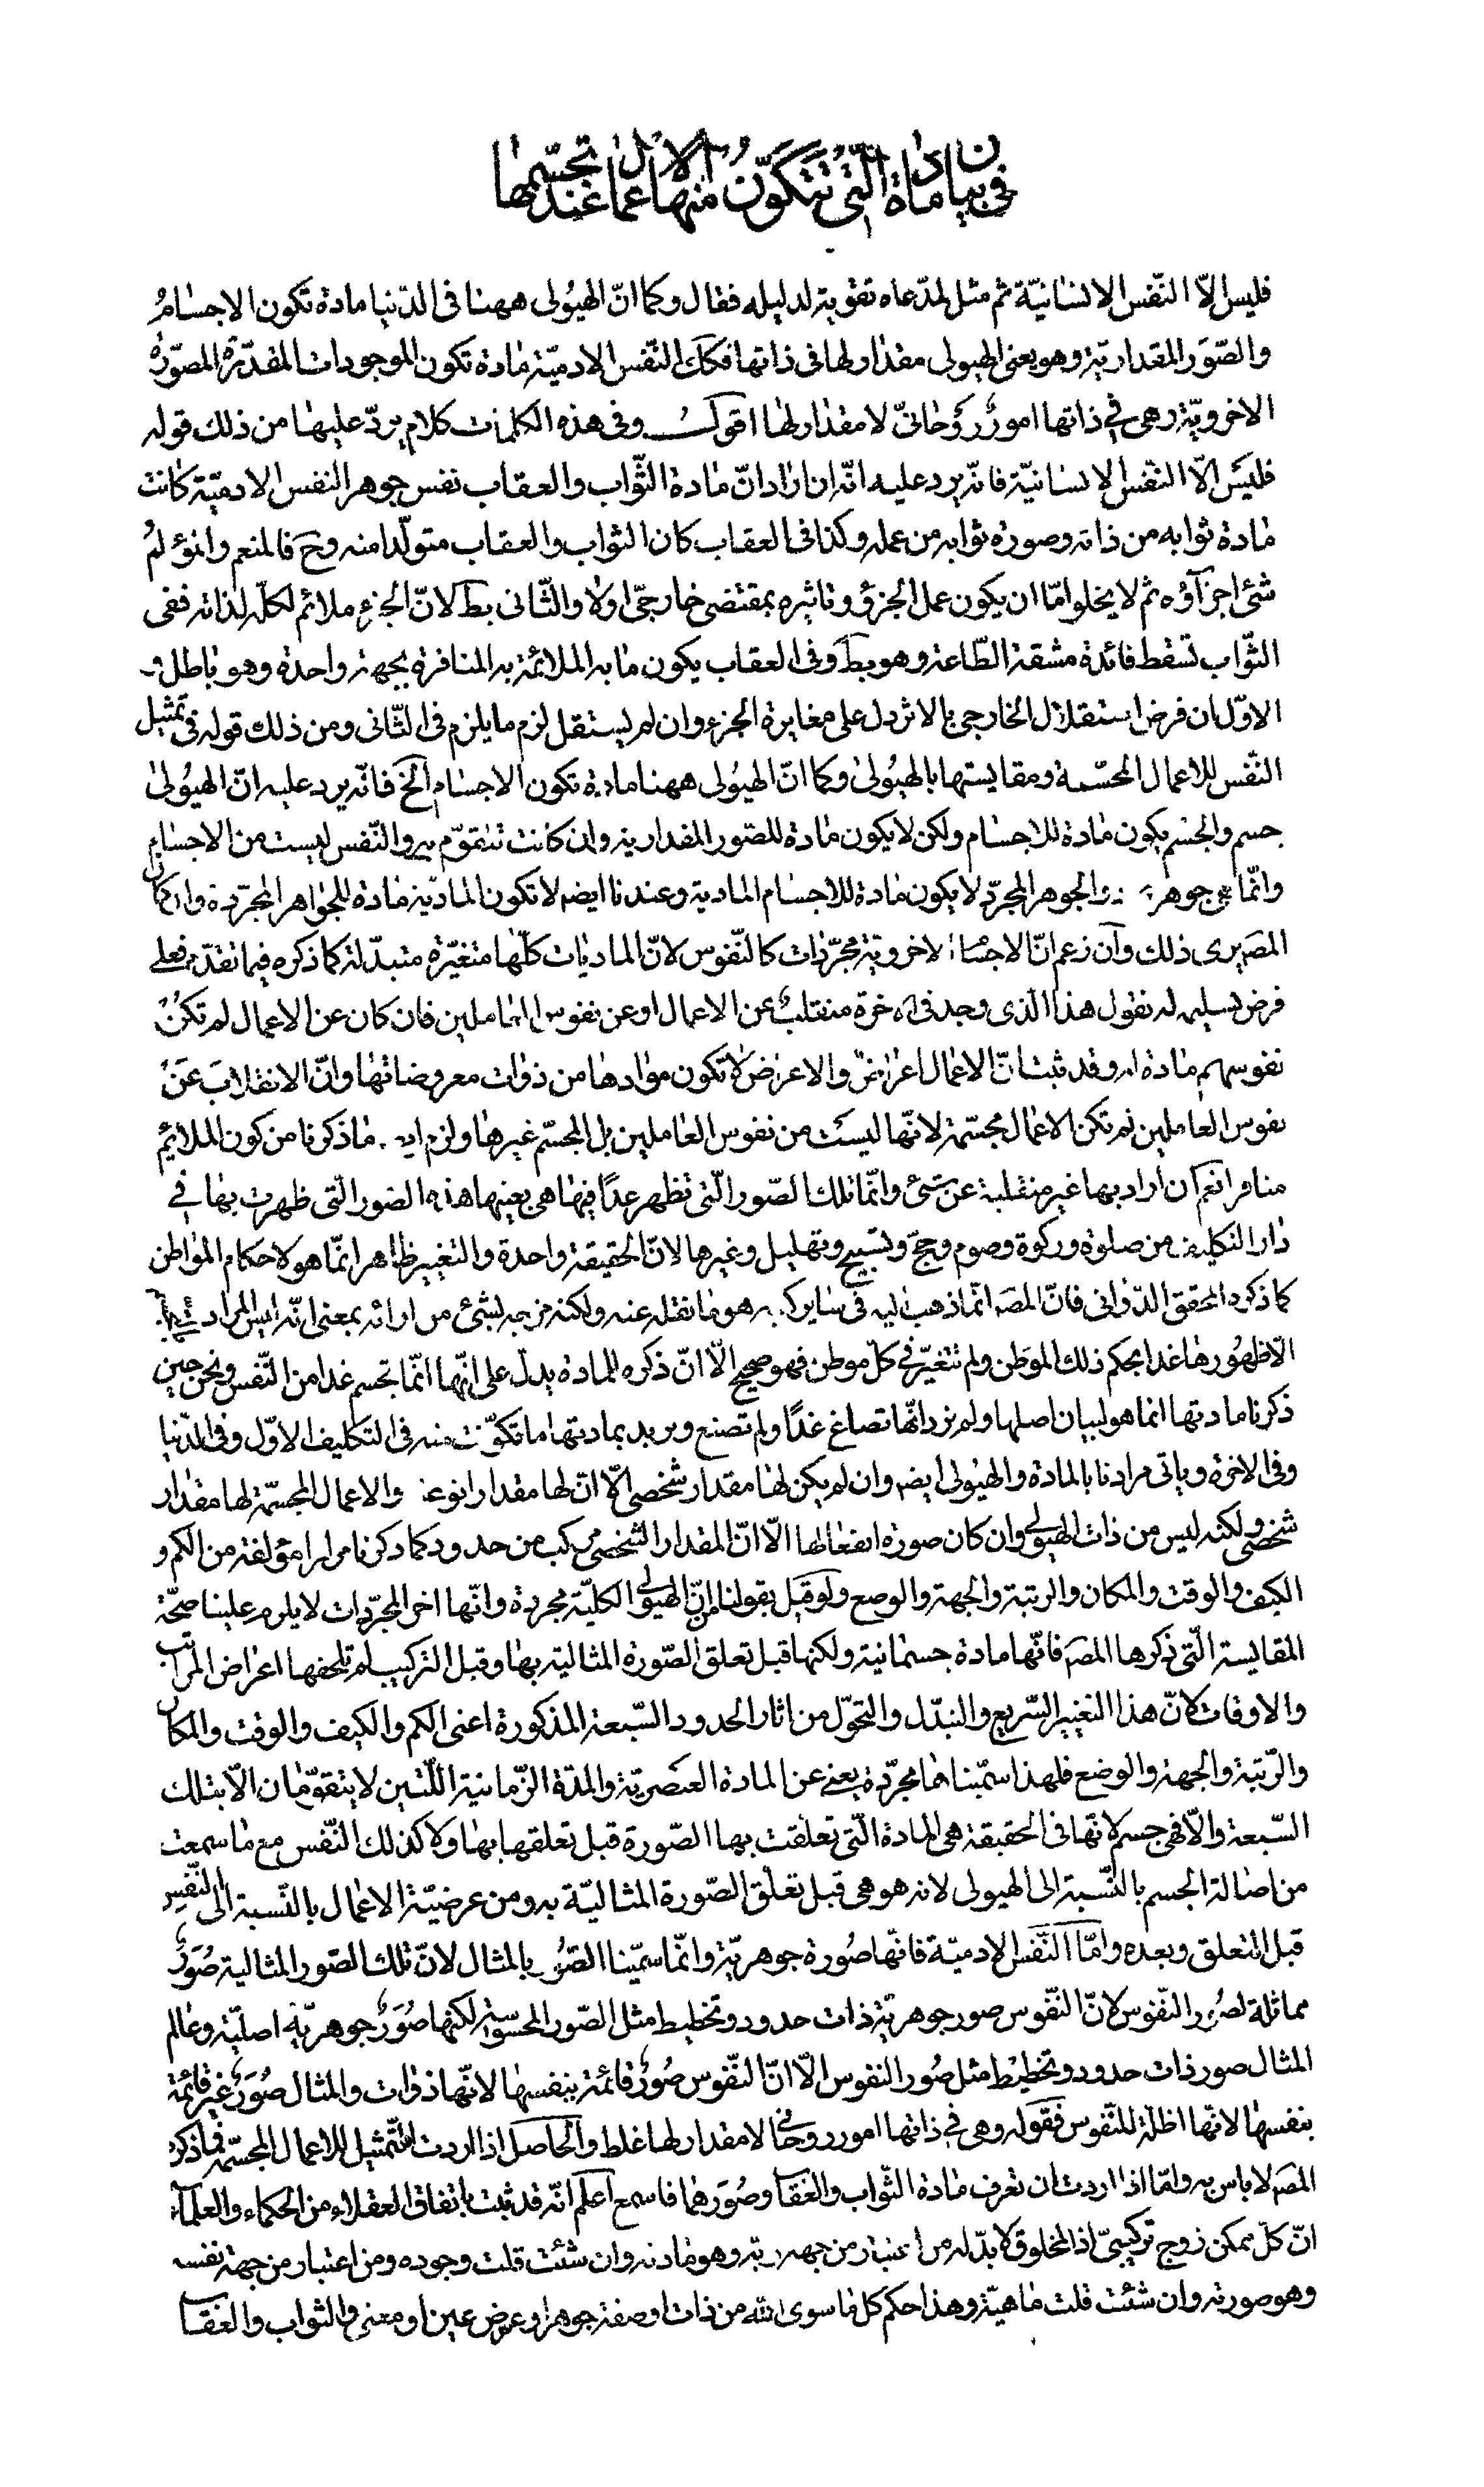 في بيان مادة التي تتكون منها الاعمال عند تجسمها
فليس الّا النّفس الانسانيّة ثم مثل لمدّعاه تقوية لدليله فقال وكما انّ الهيُولى ههنا فى الدّنيا مادة تكون الاجسٰامُ
والصّوَر المقداريّة وهو يعنى الهيولى لا مقدار لها فى ذاتها فكك النّفس الادميّة مٰادة تكون الموجودات المقدّرة المصوّرة
الاخرويّة وهى في ذاتها امورٌ رَوُحٰانيّ لا مقدٰار لهٰا اقول وفى هذه الكلمات كلام يردّ عليهٰا من ذلك قوله
فليسَ الّا النّفس الانسانيّة فانّه يرد عليه انّه ان ارٰاد انّ مٰادة الثّواب والعقاب نفس جوهر النفس الادميّة كٰانت
مٰادة ثوابه من ذاته وصورة ثوابه من عمله وكذا فى العقاب كان الثواب والعقاب متولّدا منه وح فالمنعم والمؤلمُ
شئ اجزآؤه ثم لا يخلو امّا ان يكون عمل الجزؤ وتاثيره بمقتضى خارجىّ اولا والثّانى بط لانّ الجزء ملائم لكلّه لذاته ففى
الثّواب تسقط فائدة مشقة الطّاعة وهو بط وفى العقاب يكون مٰا به الملائمة به المنافرة بجهة واحدة وهو باطل و
الاوّل ان فرض استقلال الخارجى بالاثر دل على مغايرة الجزء وان لم يستقل لزم ما يلزم فى الثّانى ومن ذلك قوله فى تمثيل
النفس للاعمال المجسّمة ومقايستها بالهيُولىٰ وكما انّ الهيُولى ههنا مادة تكون الاجسٰام الخ فانّه يرد عليه انّ الهيُولىٰ
جسم والجسم يكون مٰادة للاجسٰام ولكن لا يكون مٰادة للصّور المقدارية وان كانت تتقوّم به والنّفس ليست من الاجسٰام
وانّما هى جوهر والجوهر المجرّد لا يكون مٰادة للاجسٰام المادية وعندنا ايضه لا تكون المادّية مٰادة للجوٰاهر المجرّدة وان كان
المصه يرى ذلك وان زعم انّ الاجسٰام الاخرويّة مجرّدٰات كالنّفوس لانّ الماديٰات كلّها متغيّرة متبدّلة كما ذكره فيما تقدّم فعلى
فرض تسليمه له نقول هذا الّذى وجد فى الاخرة منقلبٌ عن الاعمال او عن نفوس العٰاملين فان كان عن الاعمال لم تكنْ
نفوسهم مٰادة له وقد ثبت انّ الاعمٰال اعرٰاضٌ والاعرٰاض لا تكون موٰادها من ذوٰات معروضاتهٰا وانّ الانقلابَ عَنْ
نفوس العاملين لم تكن الاعمٰال مجسّمة لانّها ليسَت من نفوس العٰاملين بل المجسّم غيرهٰا ولزم مٰا ذكرنا من كون الملائم
منافرا نعم ان اراد بها غير منقلبة عن شئ وانّما تلك الصّور الّتى تظهر غدًا فيهٰا هى بعينها هذه الصّور الّتى ظهرت بهٰا في
دٰار التكليف من صلوٰة وزكوة وصوم وحجّ وتسبيح وتهليل وغيرها لانّ الحقيقة واحدة والتغيير ظٰاهرا انّما هو لاحكام الموٰاطن
كما ذكره المحقق الدّوٰانى فانّ المصه انّما ذهب اليه فى ساير كتبه هو مٰا نقله عنه ولكنه مزجه بشئ من ارائه بمعنى انّه ليس المراد
الّا ظهُورهٰا غدا بحكم ذلك الموَطن ولم تتغيّر في كلّ موطن فهو صحيح الّا انّ ذكره للمادة يدلّ على انّها انّما تجسم غدا من النّفس ونحن حين
ذكرنا مادتها انما هو لبيان اصلها ولم نرد انّها تصاغ غدًا ولم تصنع ونريد بمادتها ما تكوّنت منه فى التكليف الاوّل وفى الدّنيا
وفى الاخرة وياتى مرادنا بالمادة والهيُولى ايضه وان لم يكن لهٰا مقدار شخصى الّا ان لها مقدارا نوعيا والاعمال المجسّمة لها مقدٰار
شخصى ولكنه ليس من ذات الهيولى وان كان صورة انفعالها الّا انّ المقدار الشخصى مركب من حدود كما ذكرنا مرارا مؤلفة من الكم و
الكيف والوقت والمكان والرتبة والجهة والوضع ولو قيل بقولنا من انّ الهيولى الكليّة مجردة وانّها اخر المجرّدات لا يلزم علينا صحّة
المقايسة الّتى ذكرها المصه فانّها مادة جسمانية ولكنها قبل تعلق الصّورة المثالية بهٰا وقبل التركيب لم تلحقها اعرٰاض المراتب
والاوقات لانّ هذا التغيير السّريع والتبدّل والتحوّل من اثار الحدود السّبعة المذكورة اعنى الكم والكيف والوقت والمكان
والرّتبة والجهة والوضع فلهذا سمّيناهٰا مجرّدة يعنى عن المادة العنصريّة والمدّة الزّمانية اللّتين لا يتقوّمٰان الّا بتلك
السّبعة والّا فهى جسم لانّها فى الحقيقة هى المادة الّتى تعلّقت بها الصّورة قبل تعلقها بهٰا ولا كذلك النّفس مع مٰا سمعت
من اصٰالة الجسم بالنّسبة الى الهيولى لانه هو هى قبل تعلّق الصّورة المثاليّة به ومن عرضيّة الاعمٰال بالنّسبة الى النّفس
قبل التعلق وبعده وامّا النّفس الادميّة فانّها صُورة جوهريّة وانّما سمّينا الصّور بالمثال لانّ تلك الصّور المثالية صُوَرٌ
مماثلة لصُور النّفوس لانّ النفّوس صور جوهريّة ذات حدود وتخطيط مثل الصّور المحسوسة لكنها صُوَرٌ جوهريّة اصليّة وعٰالم
المثال صور ذات حدود وتخطيْط مثل صُور النفوس الّا انّ النّفوس صُورٌ قائمة بنفسهٰا لانّها ذوٰات والمثال صُوَرٌ غير قائمة
بنفسهٰا لانّها اظلّة للنّفوس فقوله وهى في ذاتها امور روحٰانى لا مقدار لها غلط والحاصل اذا اردت التّمثيل للاعمال المجسّمة فما ذكره
المصه لا باس به وامّا اذا اردت ان تعرف مٰادة الثّواب والعقاب وصُوَرهمٰا فاسمع اعلم انّه قد ثبت باتفاق العقلاء من الحكماء والعلمآء
انّ كلّ ممكن زوج تركيبىّ اذ المخلوق لا بدّ له من اعتبار من جهة ربّه وهو مٰادته وان شئت قلت وجوده ومن اعتبار من جهة نفسه
وهو صورته وان شئت قلت مٰاهيّة وهذا حكم كل مٰا سوى الله من ذات او صفة جوهر او عرض عين او معنى والثواب والعقاب